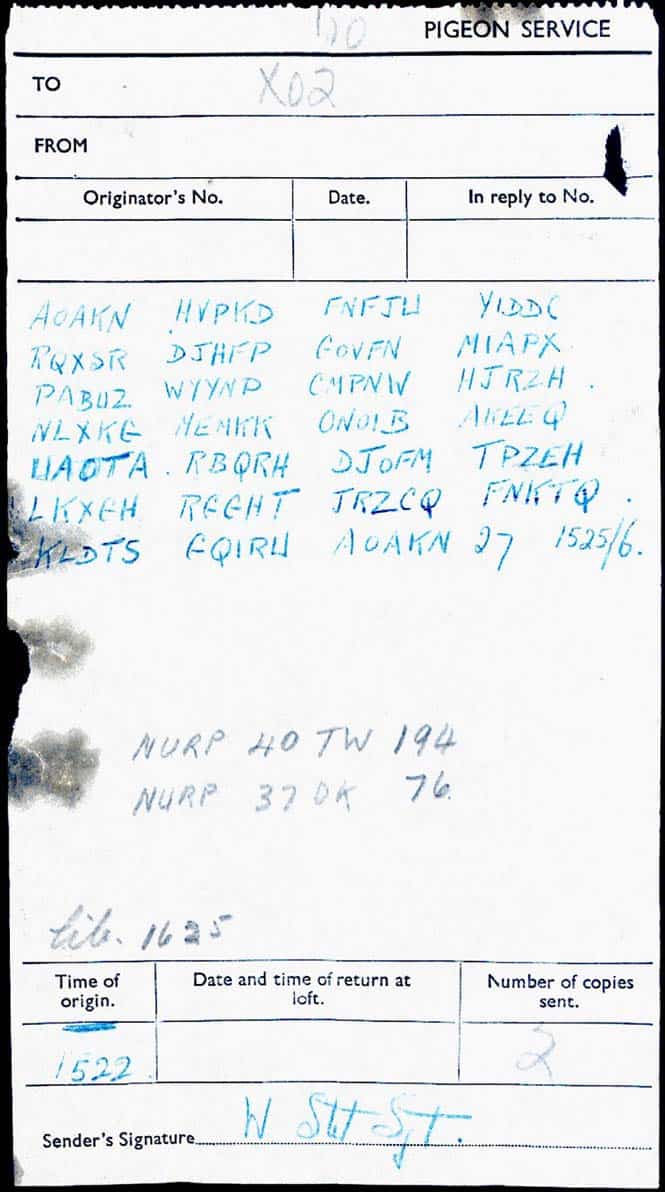 PIGEON SERVICE
TO X02
FROM
Originator's No. Date. In reply to No.
AOAKN HVPKD FNFJU YIDDC
RQXSR DJHFP GOVFN MIAPX
PABUZ WYYNP CMPNW HJRZH .
NLXKG MEMKK ONOIB AKEEQ
UAOTA . RBQRH DJOFM TPZEH
LKXGH RGGHT JRZCQ FNKTQ .
KLDTS GQIRU AOAKN 27 1525/6.
NURP 40 TW 194
NURP 37 DK 76.
lib. 1625
Time of origin. Date and time of return at loft. Number of copies sent.
1522 2
Sender's Signature W Stot Sjt.